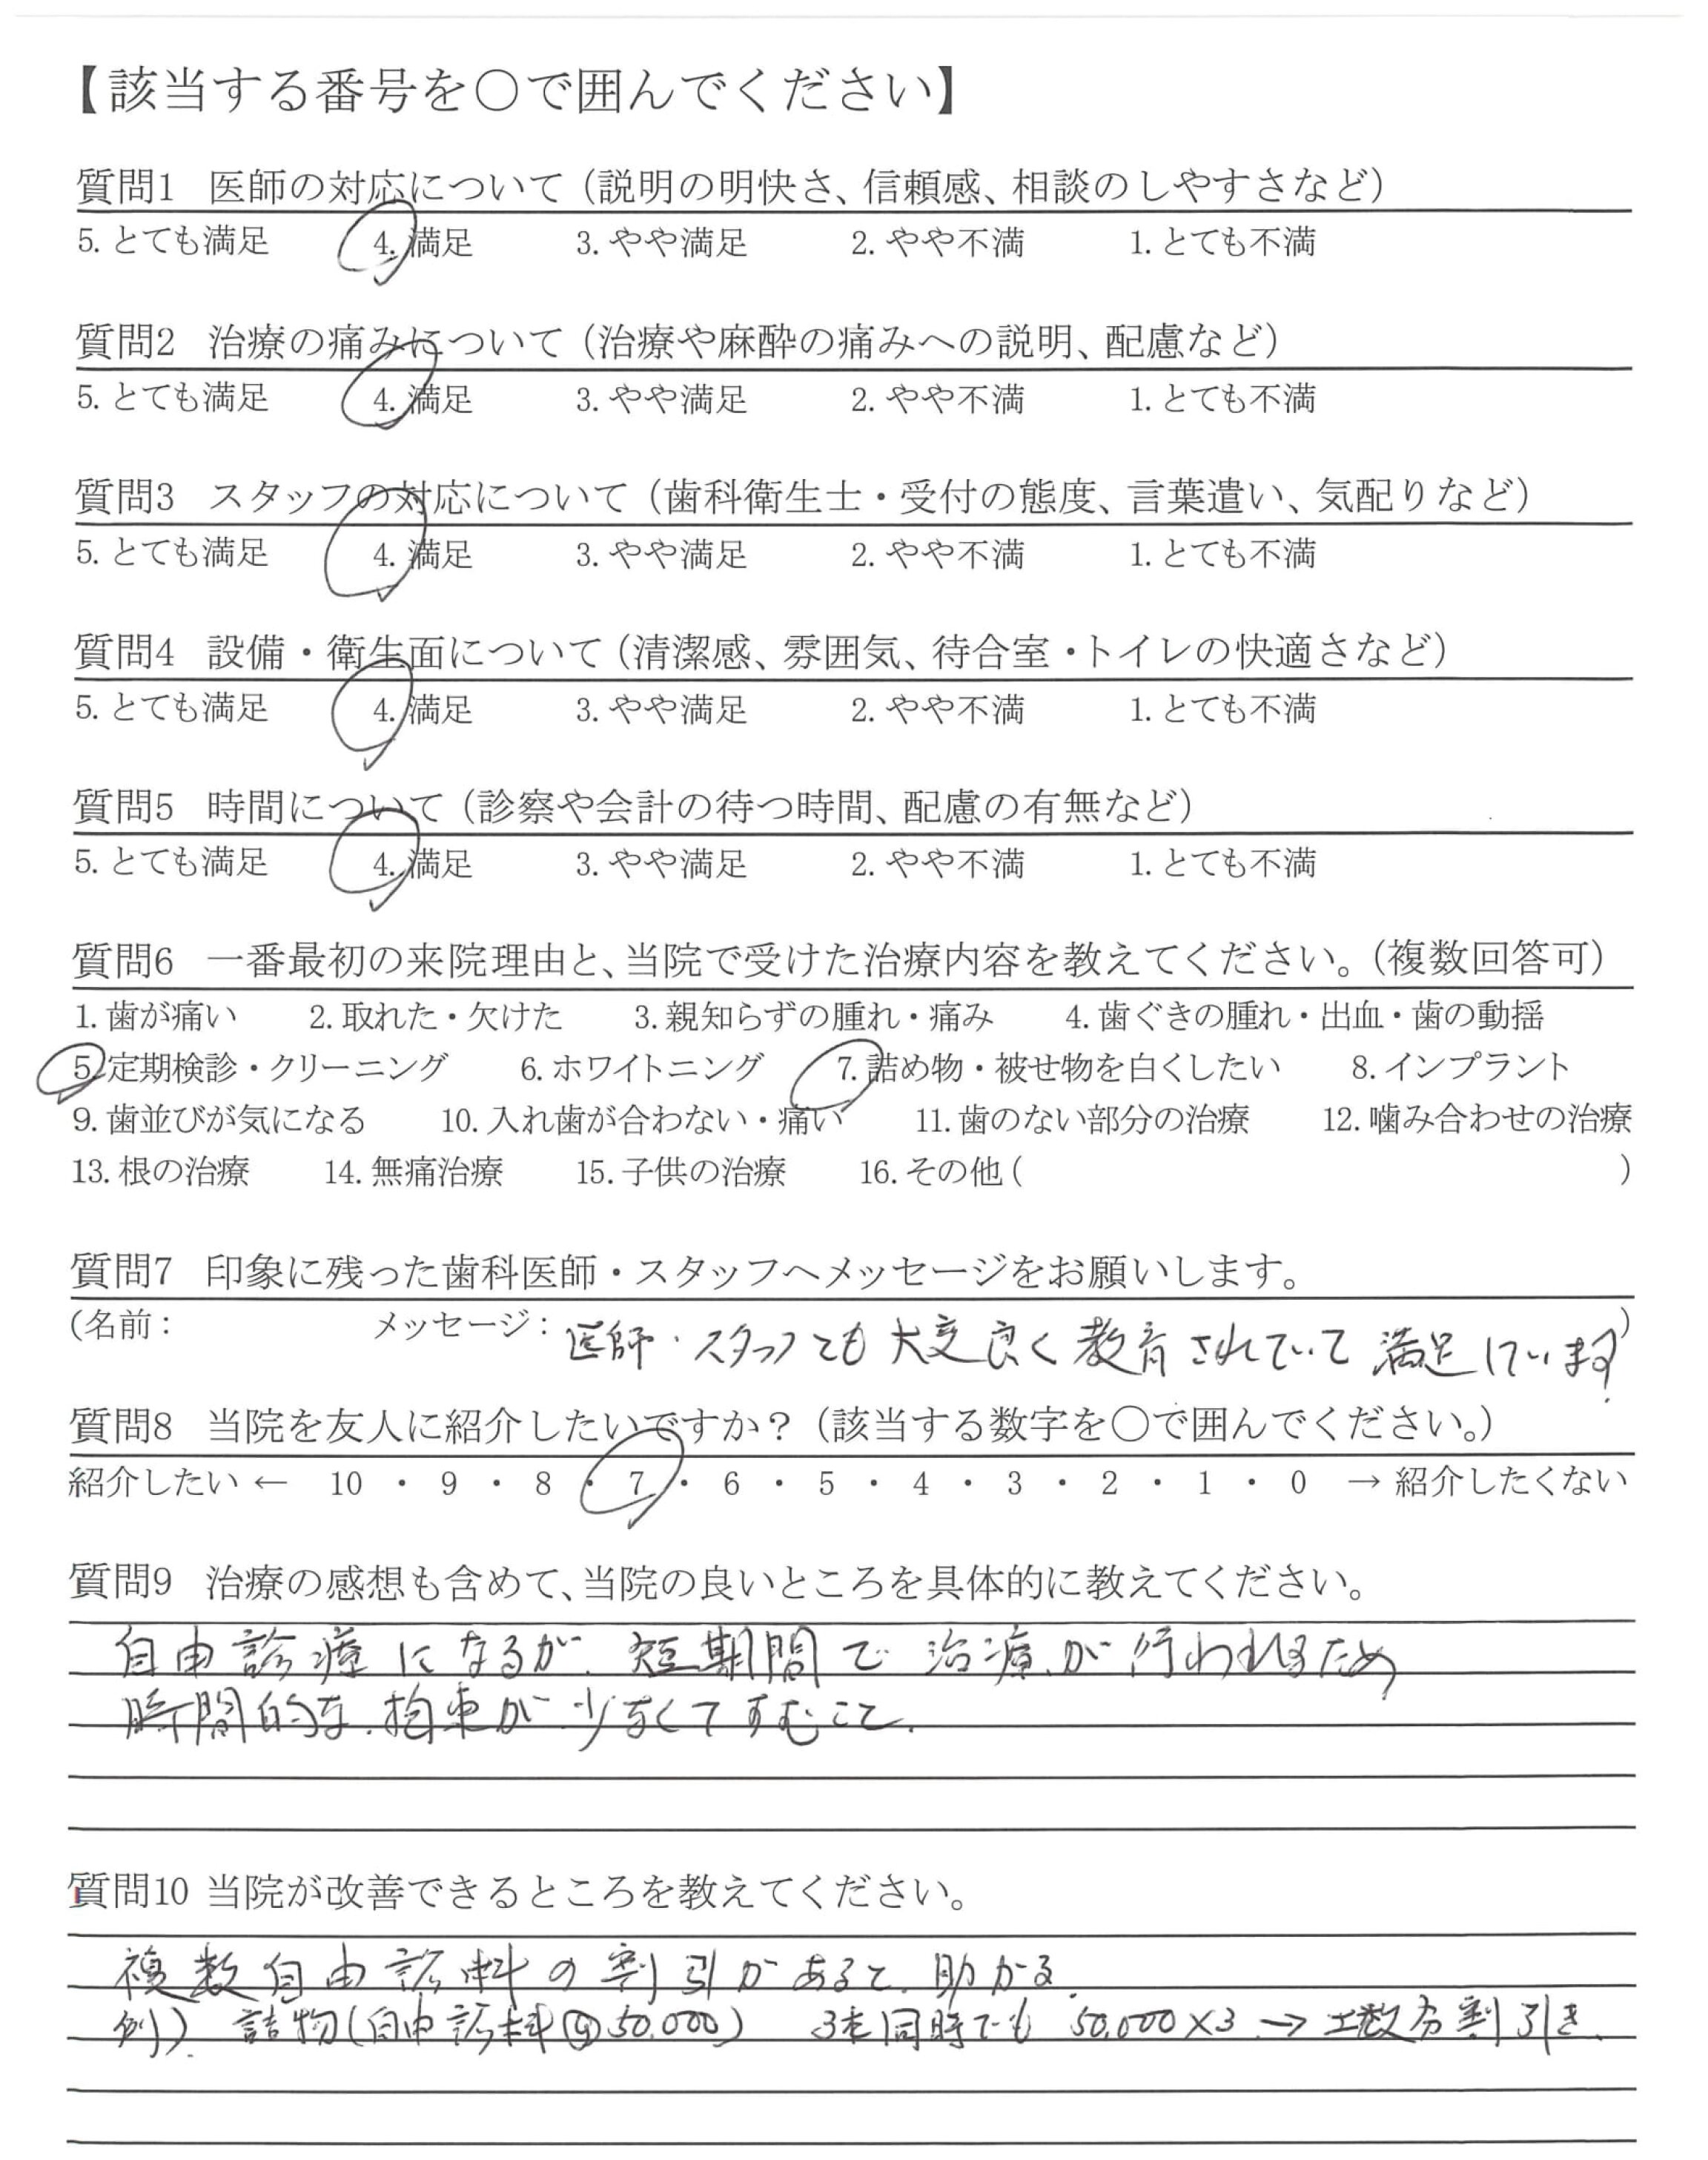 【該当する番号を〇で囲んでください】
質問1 医師の対応について（説明の明快さ、信頼感、相談のしやすさなど）
5. とても満足 4. 満足 3. やや満足 2. やや不満 1. とても不満
質問2 治療の痛みについて（治療や麻酔の痛みへの説明、配慮など）
5. とても満足 4. 満足 3. やや満足 2. やや不満 1. とても不満
質問3 スタッフの対応について（歯科衛生士・受付の態度、言葉遣い、気配りなど）
5. とても満足 4. 満足 3. やや満足 2. やや不満 1. とても不満
質問4 設備・衛生面について（清潔感、雰囲気、待合室・トイレの快適さなど）
5. とても満足 4. 満足 3. やや満足 2. やや不満 1. とても不満
質問5 時間について（診察や会計の待つ時間、配慮の有無など）
5. とても満足 4. 満足 3. やや満足 2. やや不満 1. とても不満
質問6 一番最初の来院理由と、当院で受けた治療内容を教えてください。（複数回答可）
1. 歯が痛い 2. 取れた・欠けた 3. 親知らずの腫れ・痛み 4. 歯ぐきの腫れ・出血・歯の動揺
5. 定期検診・クリーニング 6. ホワイトニング 7. 詰め物・被せ物を白くしたい 8. インプラント
9. 歯並びが気になる 10. 入れ歯が合わない・痛い 11. 歯のない部分の治療 12. 噛み合わせの治療
13. 根の治療 14. 無痛治療 15. 子供の治療 16. その他 ( )
質問7 印象に残った歯科医師・スタッフへメッセージをお願いします。
(名前： メッセージ： 医師・スタッフとも大変良く教育されていて満足しています)
質問8 当院を友人に紹介したいですか？（該当する数字を〇で囲んでください。）
紹介したい ← 10 ・ 9 ・ 8 ・ 7 ・ 6 ・ 5 ・ 4 ・ 3 ・ 2 ・ 1 ・ 0 → 紹介したくない
質問9 治療の感想も含めて、当院の良いところを具体的に教えてください。
自由診療になるが、短期間で治療が行われるため
時間的な拘束が少なくてすむこと。
質問10 当院が改善できるところを教えてください。
複数自由診料の割引があると、助かる。
例) 詰物(自由診料@50.000) 3本同時でも 50.000×3 → 数分割引き.